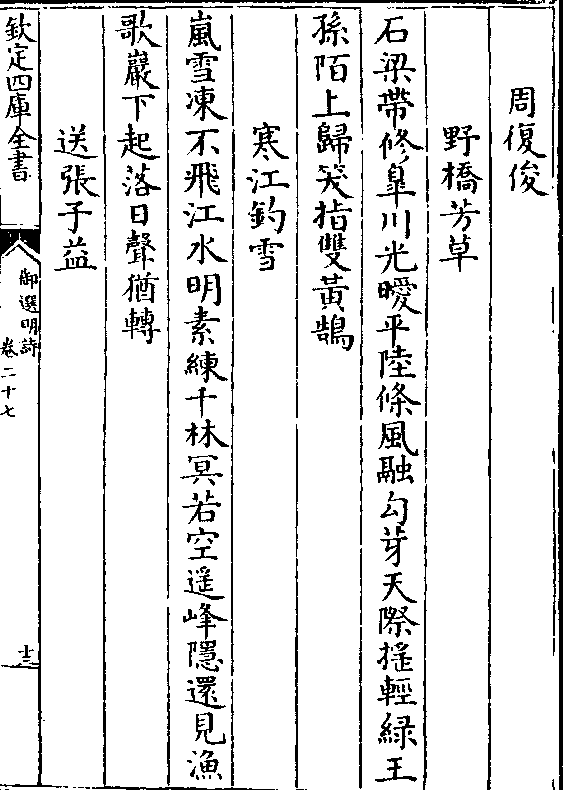 周復俊
野橋芳草
石梁帶修臯川光曖平陸條風融勾芽天際揺輕緑王
孫陌上歸笑指雙黃鵠
寒江釣雪
嵐雪凍不飛江水明素練千林冥若空遥峰隱還見漁
歌巖下起落日聲猶轉
送張子益
欽定四庫全書
御選明詩
卷二十七
十三